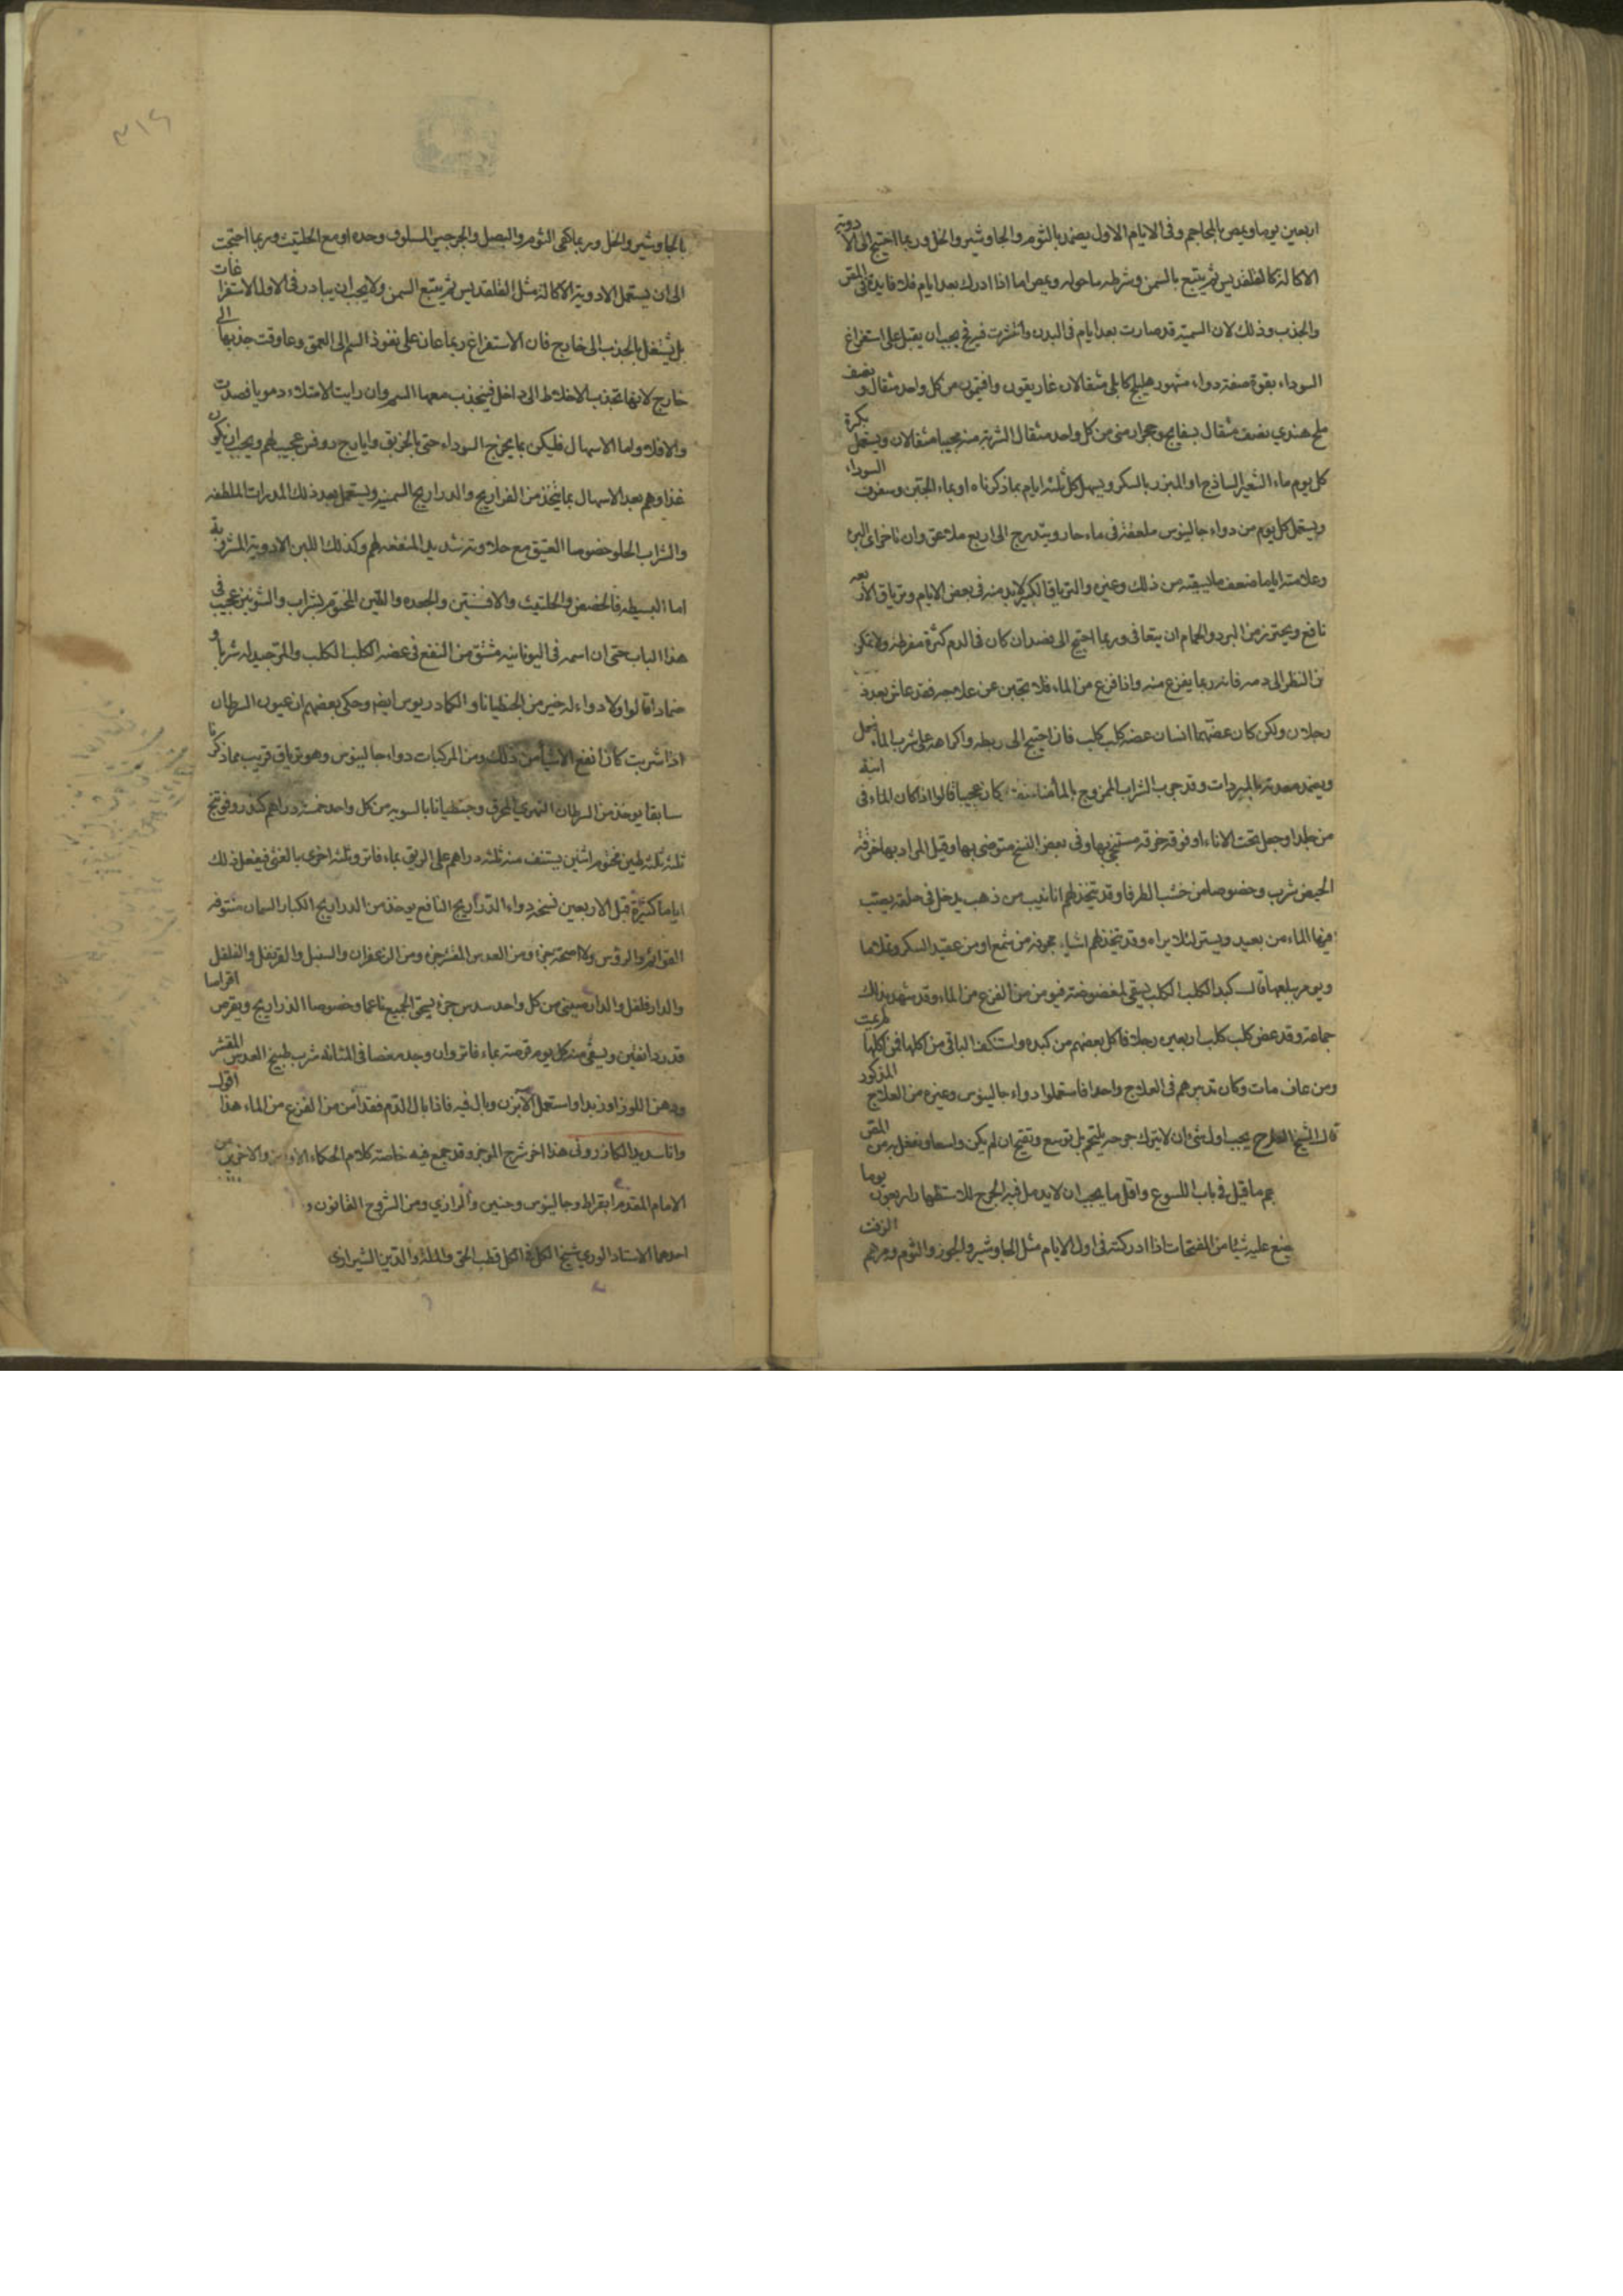 اربعين يوما ويمص بالمحاجم وفى الايام الاول يضمد بالثوم والجاوشير والخل وربما احتيج الى الادوية
الاكالة كالقلقديس ثم يتبع بالسمن وشرطه ما حوله ويمص اما اذا ادرك بعد ايام فلا فايدة فى المص
والجذب وذلك لان السمية قد صارت بعد ايام فى البدن وانتشرت فيه فح يجب ان يقبل على استفراغ
السوداء بقوة صفة دواء مشهور هليلج كابلى مثقالان غاريقون وافتيمون من كل واحد مثقال ونصف
ملح هندي نصف مثقال بسفايج وحجر ارمنى من كل واحد مثقال الشربة منه حبيا مثقالان ويستعمل بكرة
كل يوم ماء الشعير الساذج او المبزر بالسكر ويسهل كل ثلثة ايام بما ذكرناه او بماء الجبن وسفوف السوداء
ويستعمل كل يوم من دواء جالينوس ملعقة فى ماء حار ويتدرج الى اربع ملاعق وان تاخر اى البرء
وعلامته اياما ضعف ما يسقيه من ذلك وغيره والترياق الكبير لابد منه فى بعض الايام وترياق الاربعه
نافع ويحترز من البرد والحمام ان يتعافى وربما احتيج الى فصد ان كان فى الدم كثرة مفرطة ولا يمكن
من النظر الى دمه فانه ربما يفزع منه واذا فزع من الماء فلا تجبن عن علاجه فقد عاش بعده
رجلان ولكن كان عضهما انسان عضه كلب كلب فان احتيج الى ربطه واكراهه على شرب الماء فعل
ويضمد معدته بالمبردات وقد جرب الشراب الممزوج بالماء مناصفة فكان عجيبا قالوا اذا كان الماء فى انية
من جلد او جعل تحت الاناء او فوقه خرقة مستنجى بها وفى بعض النسخ متوضى بها وقيل المراد بها خرقة
الحيض شرب وخصوصا من خشب الطرفا وقد يتخذ لهم انانيب من ذهب يدخل فى حلقه يصب
فيها الماء من بعيد ويستر لئلا يراه وقد تتخذ لهم اشياء مجوفة من شمع او من عقيد السكر وتملا ما
ويومر ببلعها قال كبد الكلب الكلب يسقى لمعضوضه فيومن من الفزع من الماء وقد شهد بذلك
جماعة وقد عض كلب كلب اربعين رجلا فاكل بعضهم من كبده واستكف الباقى من اكلها فمن اكلها لم يمت
ومن عاف مات وكان تدبيرهم فى العلاج واحدا فاستعملوا دواء جالينوس وغيره من العلاج المذكور
قال الشيخ العلاج يجب اول شئ ان لا يترك جرحه يلتحم بل توسع وتفتح ان لم يكن واسعا وتفعل به من المص
بجم ما قيل فى باب اللسوع واقل ما يجب ان لا يدمل فيه الجرح للاستظهار اربعون يوما
يضع عليه شيئا من المفتحات اذا ادركته فى اول الايام مثل الجاوشير والجوز والثوم ومرهم الزفت
بالجاوشير والخل وربما كفى الثوم والبصل والجرجير المسلوق وحده او مع الحلتيت وربما احتجت
الى ان يستعمل الادوية الاكالة مثل القلقديس ثم يتبع السمن ولا يجب ان يبادر فى الاول الاستفراغات
بل يشتغل بالجذب الى خارج فان الاستفراغ ربما عان على نفوذ السم الى العمق وعاوقت جذبها الى
خارج لانها تجذب الاخلاط الى داخل فينجذب معها السم وان رايت الامتلاء دمويا فصدت
والا فلا واما الاسهال فليكن بما يخرج السوداء حتى بالخربق وايارج روفس عجيب لهم ويجب ان يكون
غذاوهم بعد الاسهال بما يتخذ من الفراريج والدراريج السمينة ويستعمل بعد ذلك المدرات الملطفه
والشراب الحلو خصوصا العتيق مع حلاوته شديد المنفعه لهم وكذلك اللبن الادوية المشروبة
اما البسيطه فالحضض والحلتيت والافسنتين والجعده والطين المختوم بشراب والشونيز عجيب فى
هذا الباب حتى ان اسمه فى اليونانيه مشتق من النفع فى عضه الكلب الكلب والمر جيد له شربا و
ضمادا قالوا ولا دواء له خير من الجنطيانا والكمادريوس ايضا وحكى بعضهم ان عيون السرطان
اذا شربت كان انفع الاشيا من ذلك ومن المركبات دواء جالينوس وهو ترياق قريب مما ذكرنا
سابقا يوخذ من السرطان النهري المحرق وجنطيانا بالسويه من كل واحد خمسة دراهم كندر وفوتنج
ثلثه ثلثه طين مختوم اثنين يستف منه ثلثه دراهم على الريق بماء فاتر وثلثه اخرى بالعشى فيفعل ذلك
اياما كثيرة قبل الاربعين نسخه دواء الذراريح النافع يوخذ من الدراريج الكبار السمان منتوفه
القوائم والروس ولا اجنحة جزء ومن العدس المقشر جزء ومن الزعفران والسنبل والقرنفل والفلفل
والدارفلفل والدارصينى من كل واحد سدس جزء يسحق الجميع ناعما وخصوصا الذراريح ويقرص اقراصا
قدر دانقين ويسقى منه كل يوم قرصة بماء فاتر وان وجد مغصا فى المثانه شرب طبيخ العدس المقشر
ودهن اللوز او زبدا واستعمل الابزن وبال فيه فاذا بال الدم فقد امن من الفزع من الماء هذا اقول
وانا سديد الكازرونى هذا اخر شرح الموجز وقد جمع فيه خاصة كلام الحكماء الاولين والاخرين من
الامام المقدم ابقراط وجالينوس وحنين والرازي ومن الشروح القانون و
احدهما الاستاد الوري شيخ الكل فى الكل قطب الحق والملة والدين الشيرازى